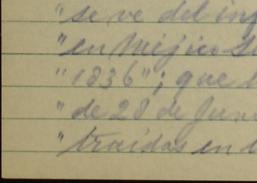 "se ve del inf
"en Méjico se
"1836"; que
"de 20 de Jun
"traídas en